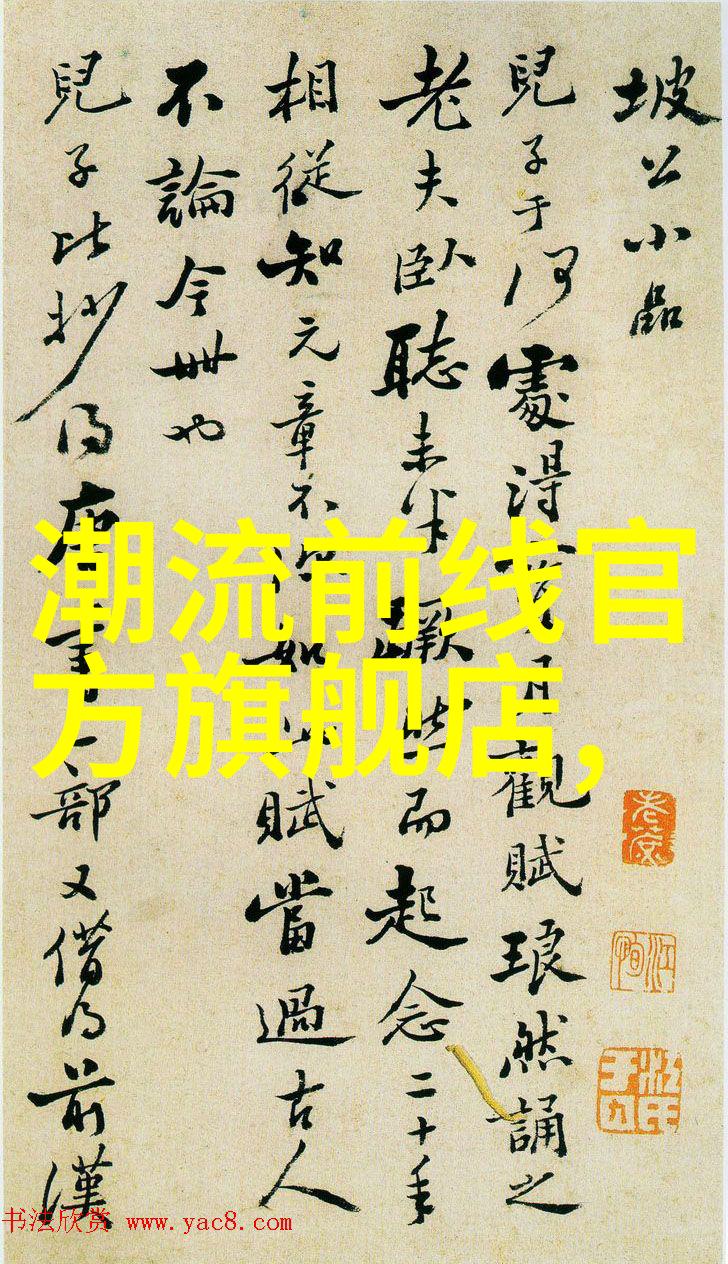 坡公小品
兒子于何處得月觀賦琅然誦之
老夫臥聽未半蹶然而起念二十年
相從知元章不如此賦當過古人
不論今世也
兒子比抄得唐書一部又借得前漢
潮流前线官
方旗舰店,
书法欣赏 www.yac8.com